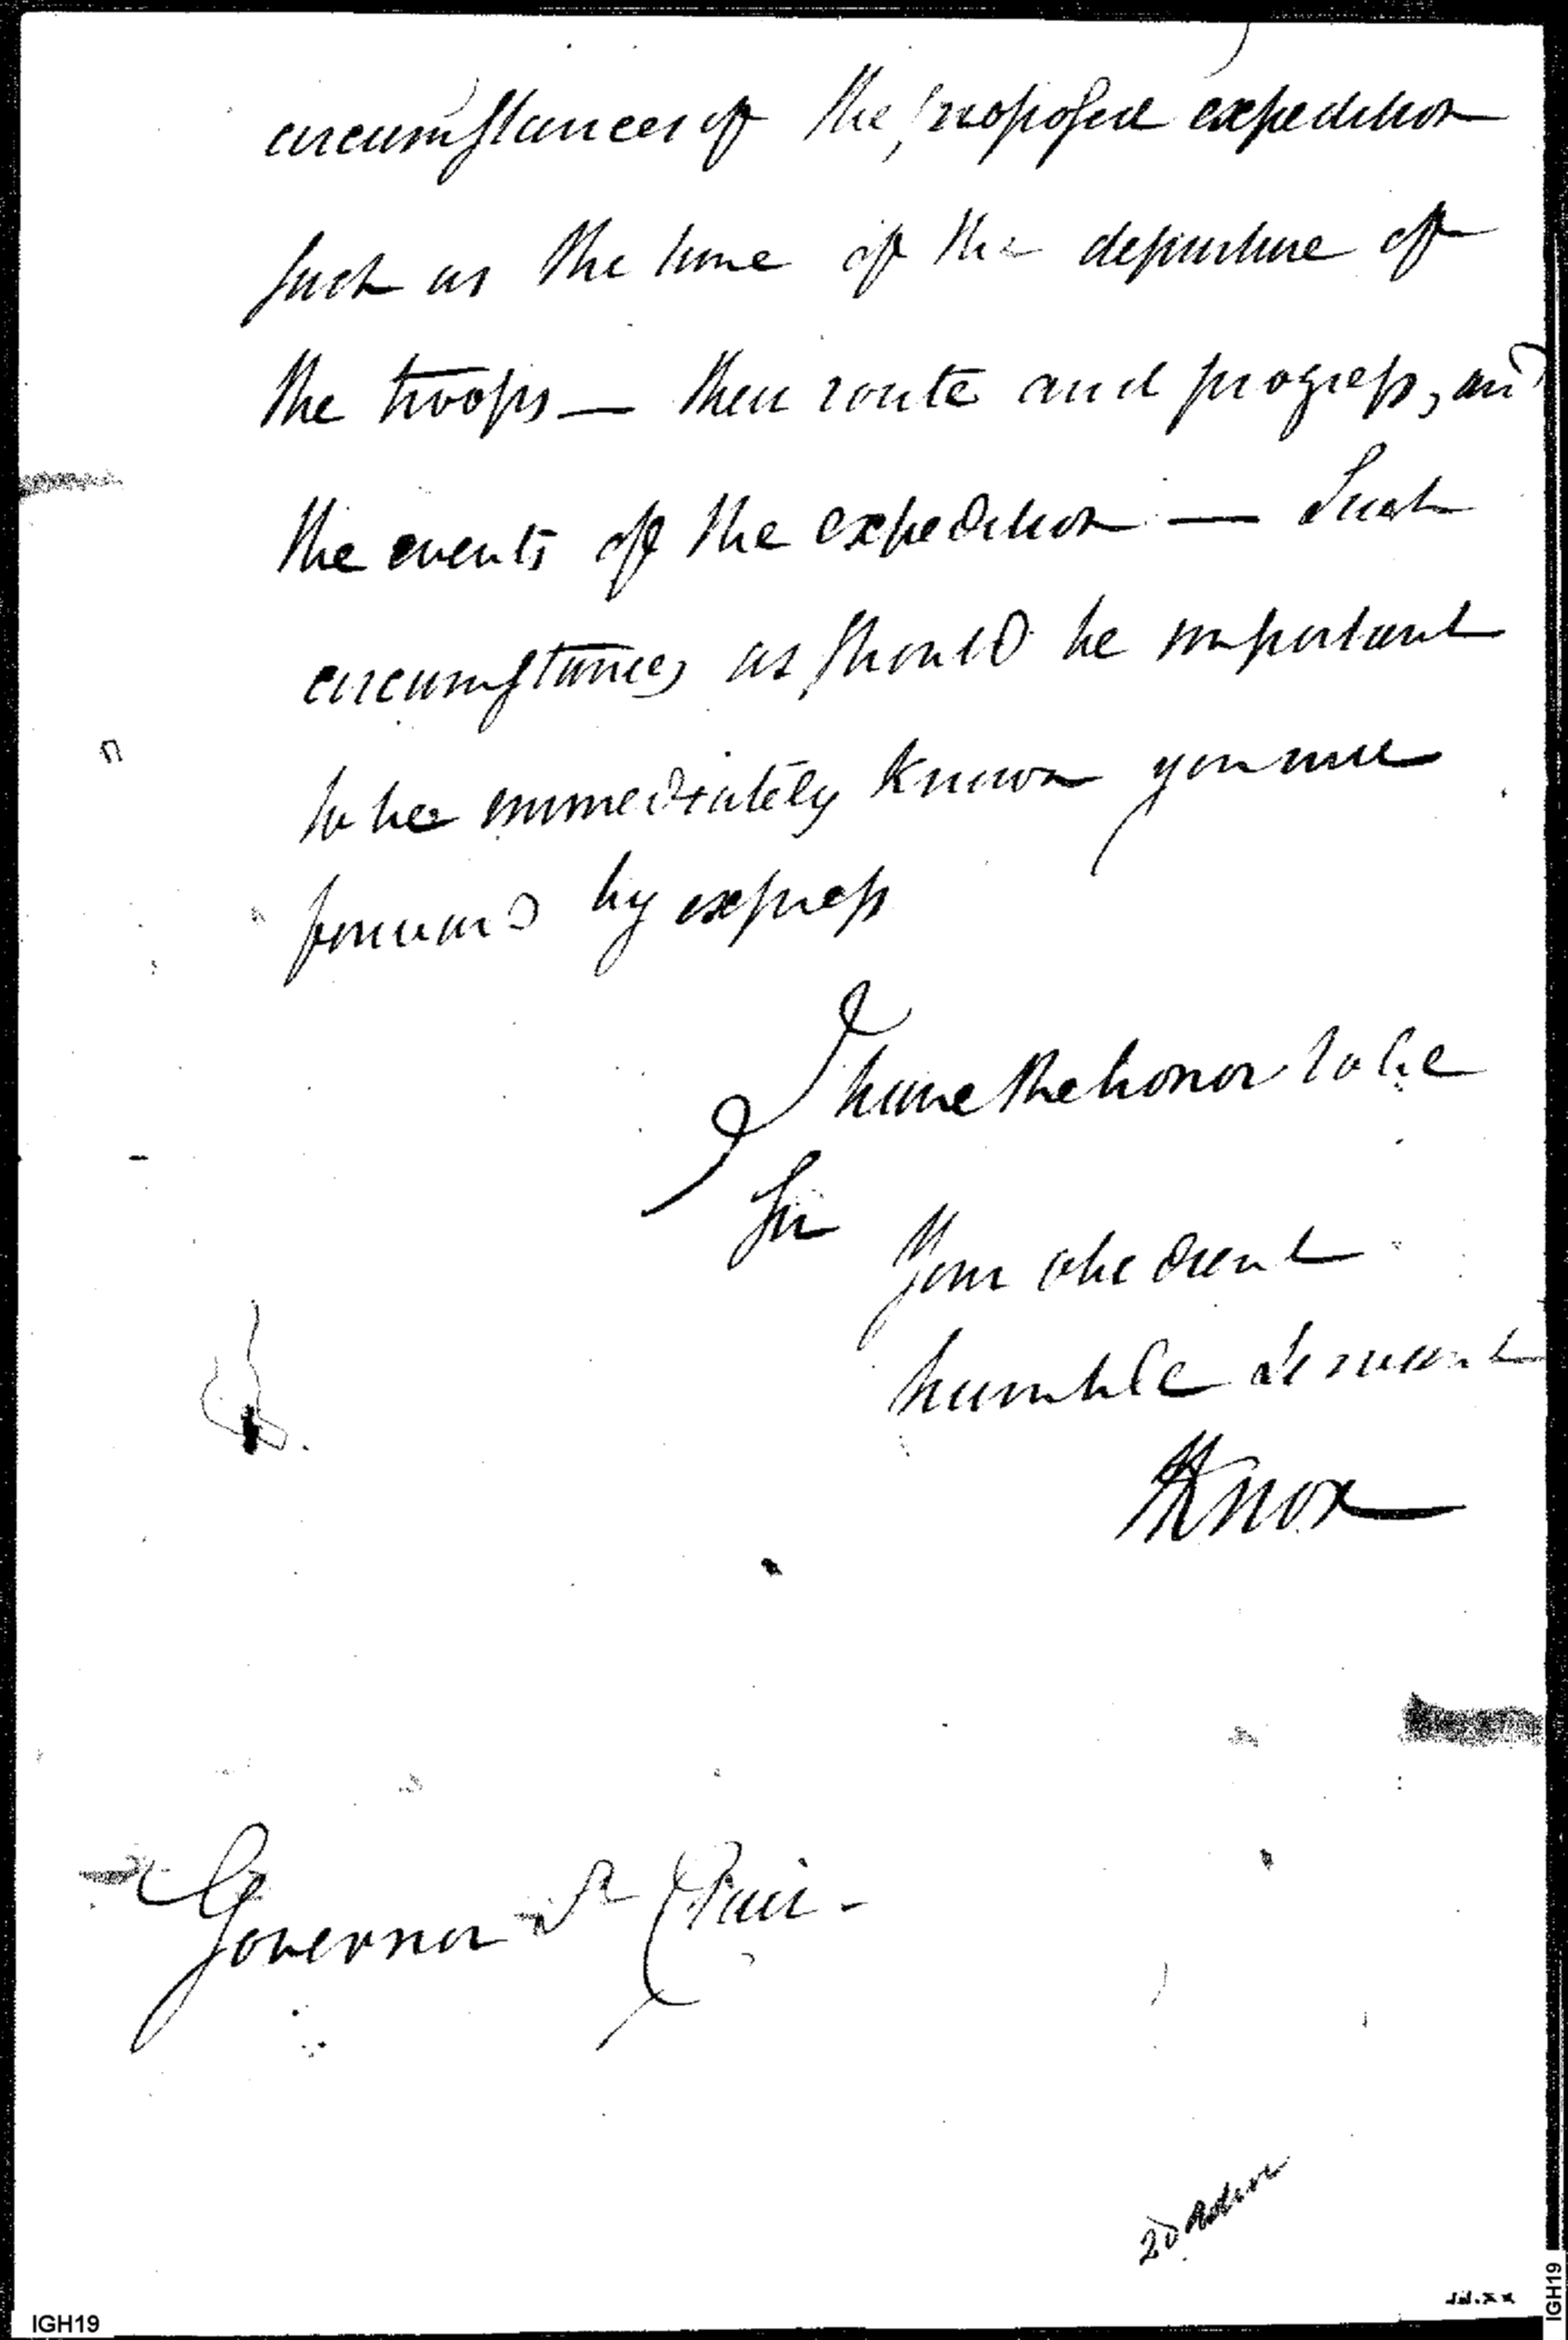 circumstances of the proposed expedition
such as the time of the departure of
the troops — their route and progress, and
the events of the expedition — Such
circumstances as should be important
to be immediately known you will
forward by express
I have the honor to be
Sir
Your obedient
humble Servant
HKnox
Governor St Clair -
20
IGH19
IGH19